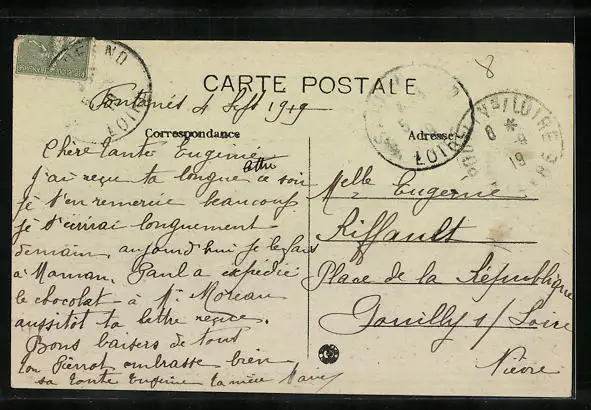 CARTE POSTALE
Fontanès 4 Sept 1919
Correspondance
Adresse
Chère tante Eugénie
J'ai reçu ta longue lettre ce soir
je t'en remercie beaucoup
je t'écrirai longuement
demain aujourd'hui je le fais
à Maman. Paul a expédié
le chocolat à Mr Moreau
aussitôt ta lettre reçue.
Bons baisers de tous
ton Pierrot embrasse bien
sa tante Eugénie ta nièce Marie
Melle Eugénie
Riffault
Place de la République
Pouilly s/ Loire
Nièvre
LOIRE
LOIRE